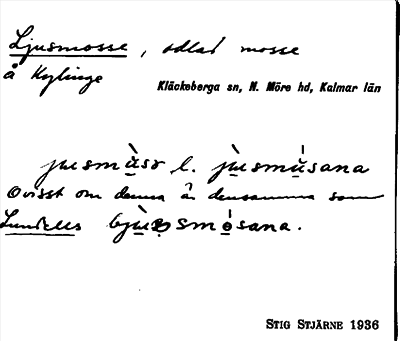 Ljusmosse, odlad mosse
å Kylinge
Kläckeberga sn, N. Möre hd, Kalmar län
jusmùsɷ l. jùsmúsana
Ovisst om denna är densamma som
Lundells
STIG STJÄRNE 1936